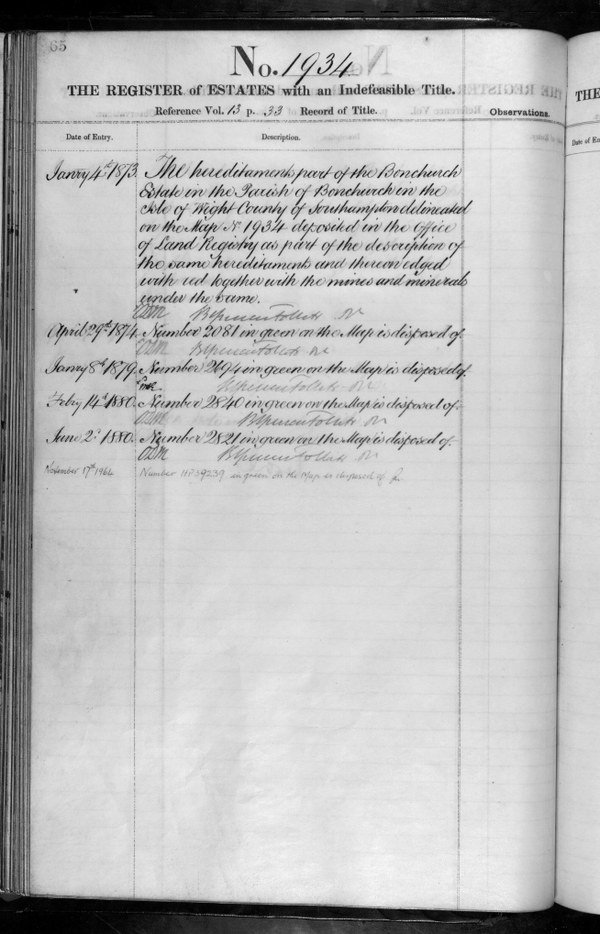 65
No. 1934
THE REGISTER of ESTATES with an Indefeasible Title.
Reference Vol. 13 p. 33 Record of Title.
Observations.
Date of Entry. Description.
Janry 4th 1873. The hereditaments part of the Bonchurch
Estate in the Parish of Bonchurch in the
Isle of Wight County of Southampton delineated
on the Map No. 1934 deposited in the Office
of Land Registry as part of the description of
the same hereditaments and thereon edged
with red together with the mines and minerals
under the same.
April 29th 1874. Number 2081 in green on the Map is disposed of.
Janry 8th 1879. Number 2694 in green on the Map is disposed of.
Febry 14th 1880. Number 2840 in green on the Map is disposed of.
June 2d 1880. Number 2821 in green on the Map is disposed of.
November 17th 1966 Number HP39239 in green on the Map is disposed of
THE
Date of En